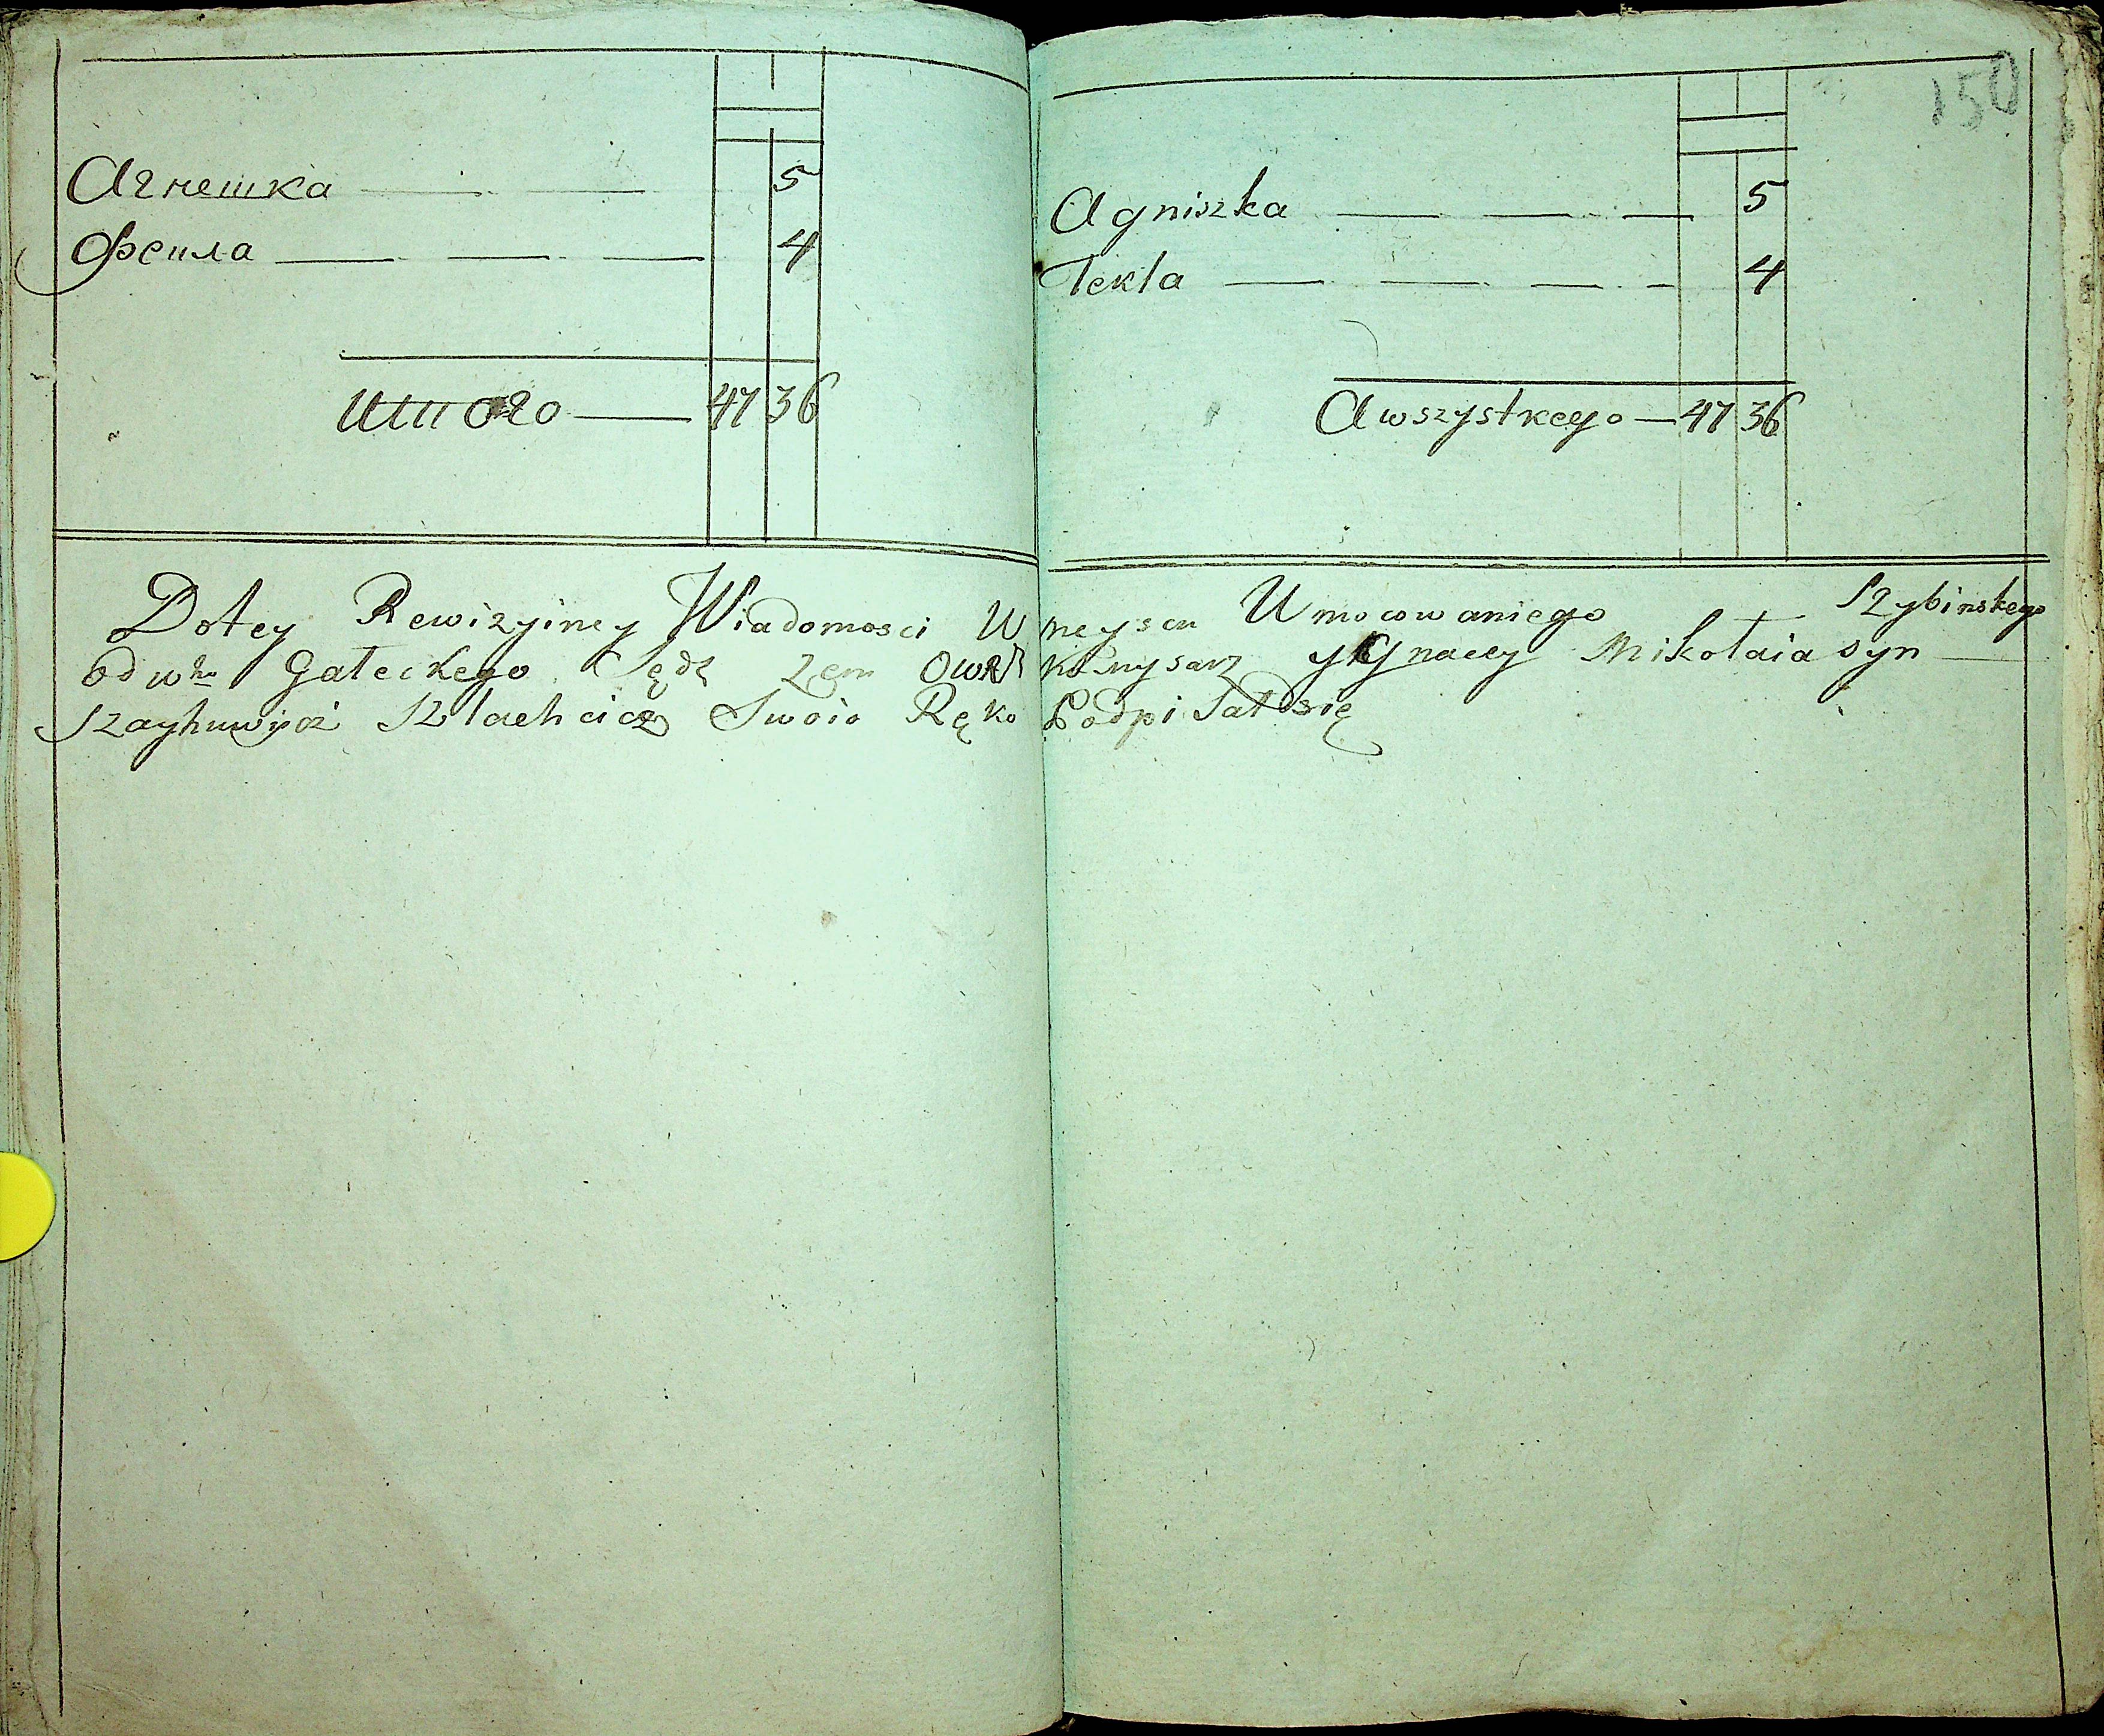 150
Агнешка 5
Фекла 4
Итого 47 36
Agniszka 5
Tekla 4
A wszystkego 47 36
Dotey Rewizyiney Wiadomosci W meyscu Umocowaniego Szybinskego
od Gateckego Sędz Zem Mikołaia syn
Szlachcicz Swoio Ręko Podpisał się